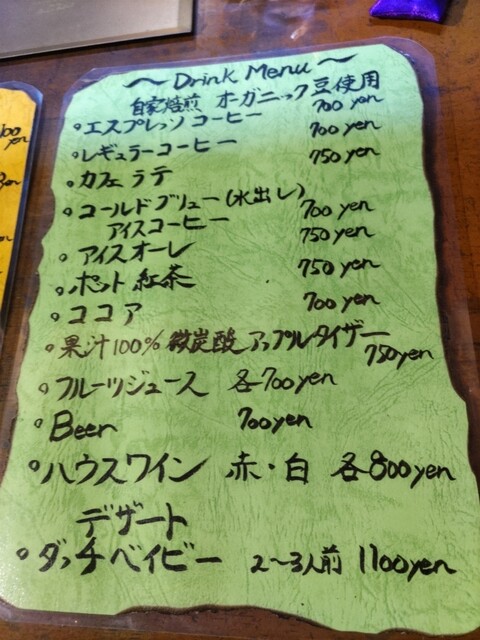 〜 Drink Menu 〜
自家焙煎 オーガニック豆使用
・エスプレッソコーヒー 700 yen
・レギュラーコーヒー 700 yen
・カフェラテ 750 yen
・コールドブリュー(水出し)
アイスコーヒー 700 yen
・アイスオーレ 750 yen
・ポット紅茶 750 yen
・ココア 700 yen
・果汁100% 微炭酸 アップルタイザー
750yen
・フルーツジュース 各700yen
・Beer 700yen
・ハウスワイン 赤・白 各800yen
デザート
・ダッチベイビー 2〜3人前 1100yen